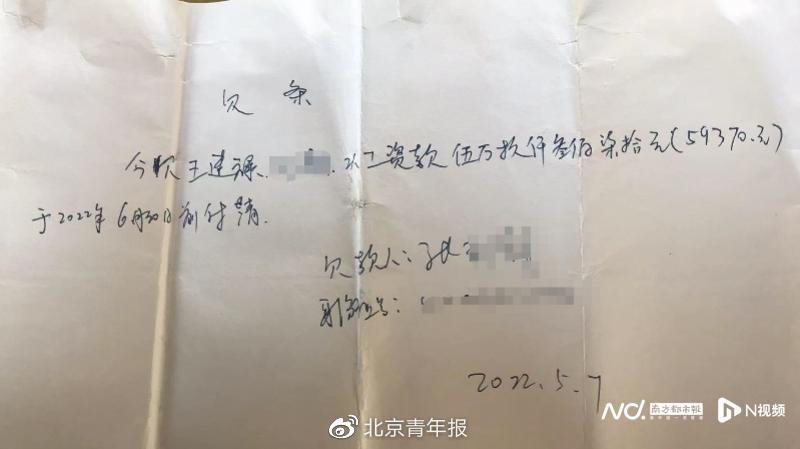 欠条
今欠王建
工资款伍万玖仟叁佰柒拾元(59370.元)
于2022年6月30日前付清.
欠款人:张
身份证号:
2022.5.7
nd. 南方都市报 N视频
北京青年报